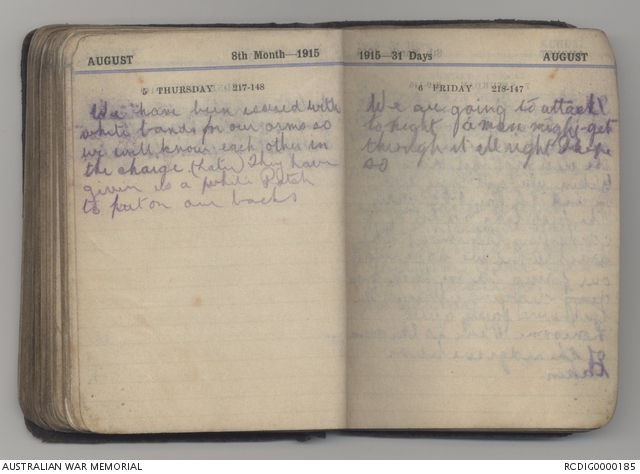 AUGUST 8th Month—1915
5 THURSDAY 217-148
We have been issued with
white bands for our arms so
we will know each other in
the charge (Later) They have
given us a white Patch
to put on our backs
1915—31 Days AUGUST
6 FRIDAY 218-147
We are going to attack
tonight a man might get
through it all right I hope
so
AUSTRALIAN WAR MEMORIAL
RCDIG0000185